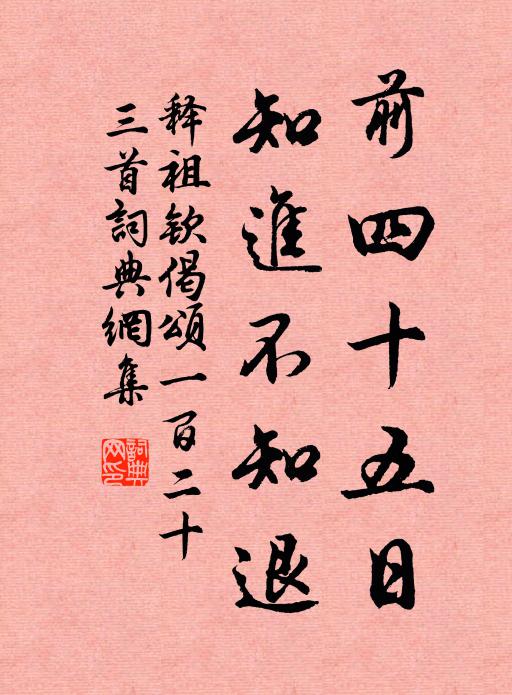 前四十五日
知進不知退
释祖钦偈頌一百二十
三首詞典網集
詞典
网印